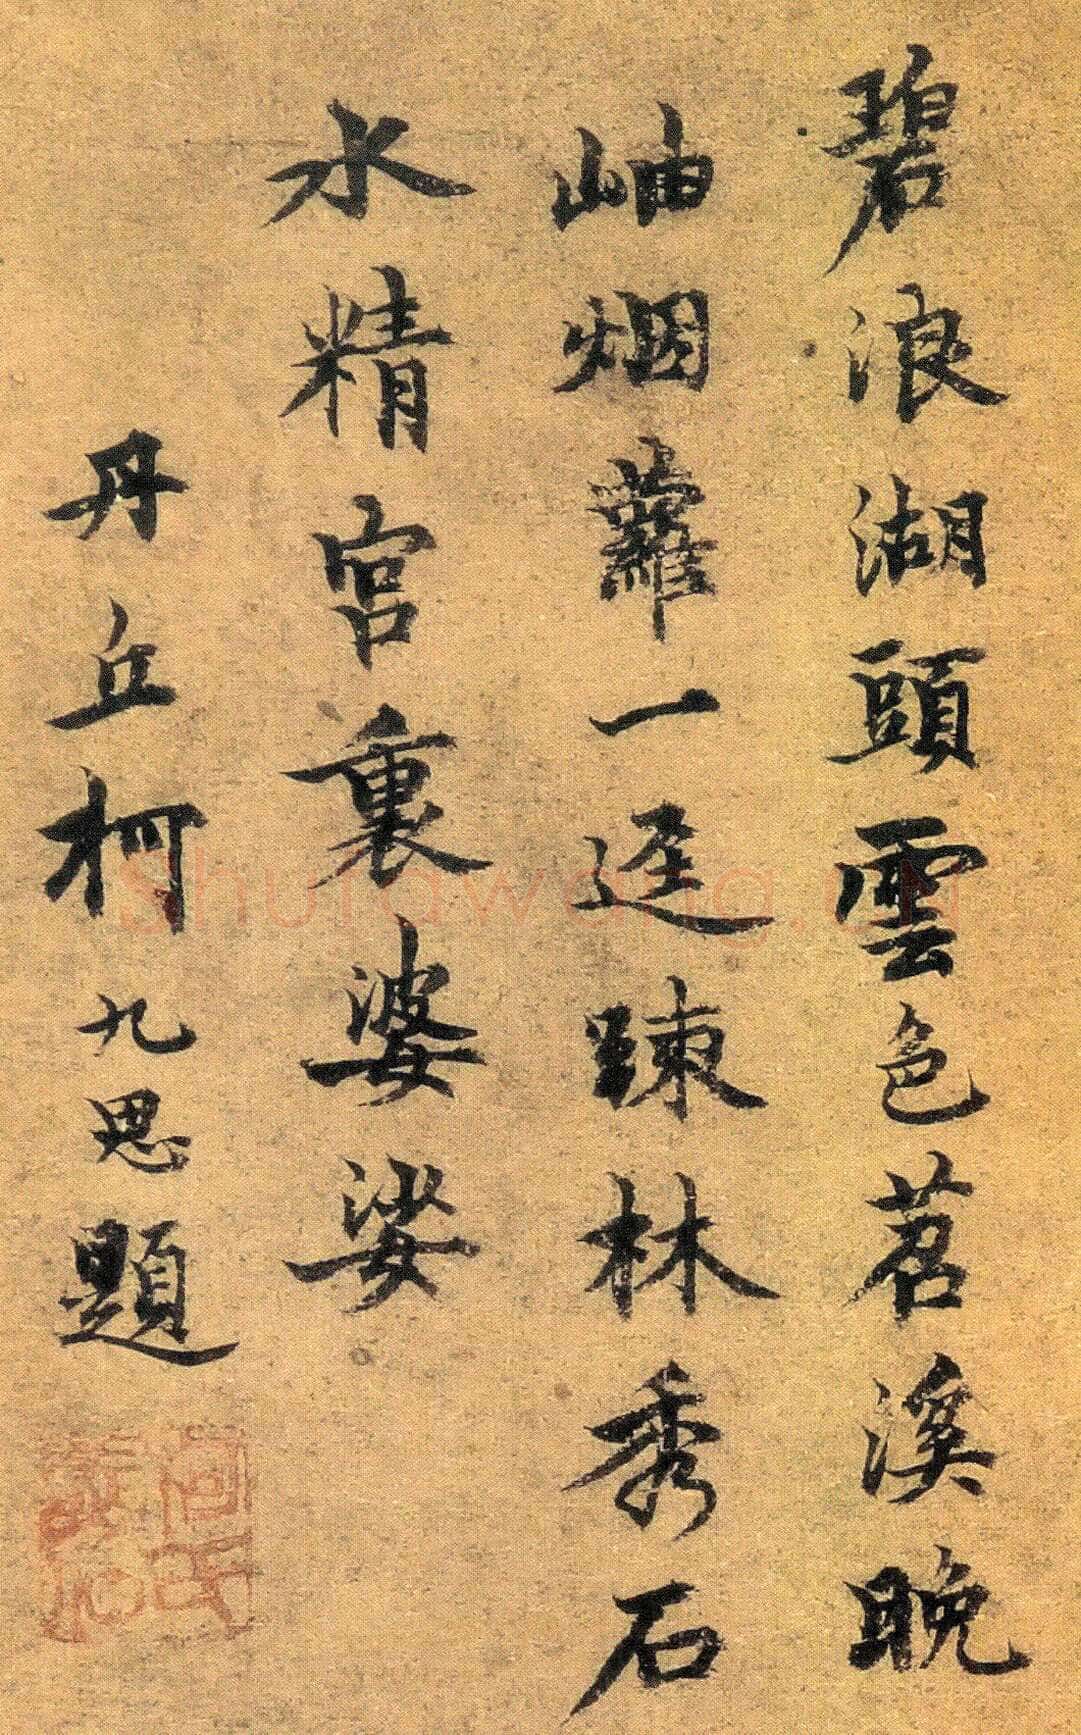 碧浪湖頭雲色苕溪晚
岫烟蘿一逕踈林秀石
水精宮裏婆娑
丹丘柯九思題
柯氏敬仲
Shufawang.cn